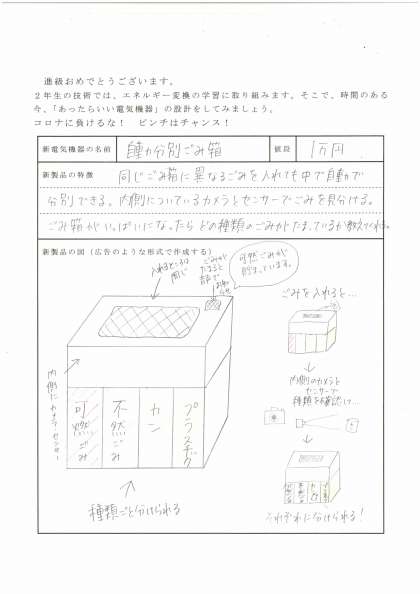 進級おめでとうございます。
２年生の技術では、エネルギー変換の学習に取り組みます。そこで、時間のある
今、「あったらいい電気機器」の設計をしてみましょう。
コロナに負けるな！　ピンチはチャンス！
新電気機器の名前
分別ごみ箱
値段
1万円
新製品の特徴
同じごみ箱に異なるごみを入れても中で自動で
分別できる。内側についているカメラとセンサーでごみを見分ける。
ごみ箱がいっぱいになったらどの種類のごみがたまっているか教えてくれる。
新製品の図（広告のような形式で作成する）
入れるところは
同じ
ごみが
たまると
音声で
お知らせ
可燃ごみが
貯まっています。
ごみを入れると…
内側にカメラ、センサー
可燃ごみ
不燃ごみ
カン
プラスチック
内側のカメラと
センサーで
種類を確認して…
種類ごと分けられる
それぞれに分けられる！